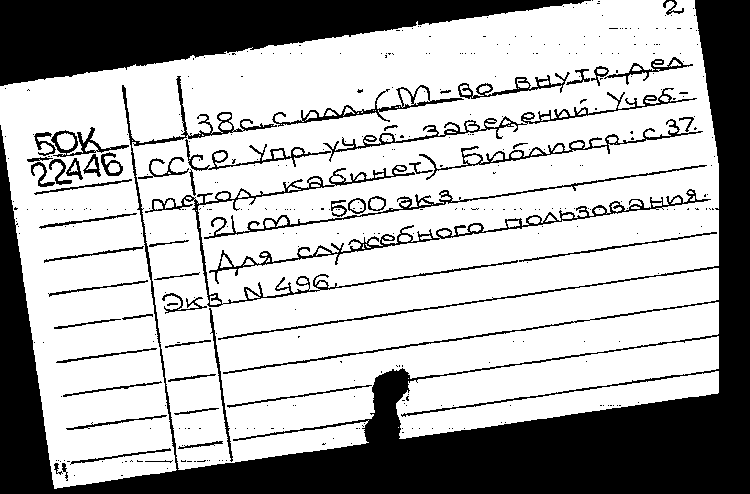 2
38 с. с илл. (М-во внутр. дел
50К
СССР. Упр. учеб. заведений. Учеб.-
22446
метод. кабинет). Библиогр.: с. 37.
21 cm. 500 экз.
Для служебного пользования.
Экз. N 496.
4